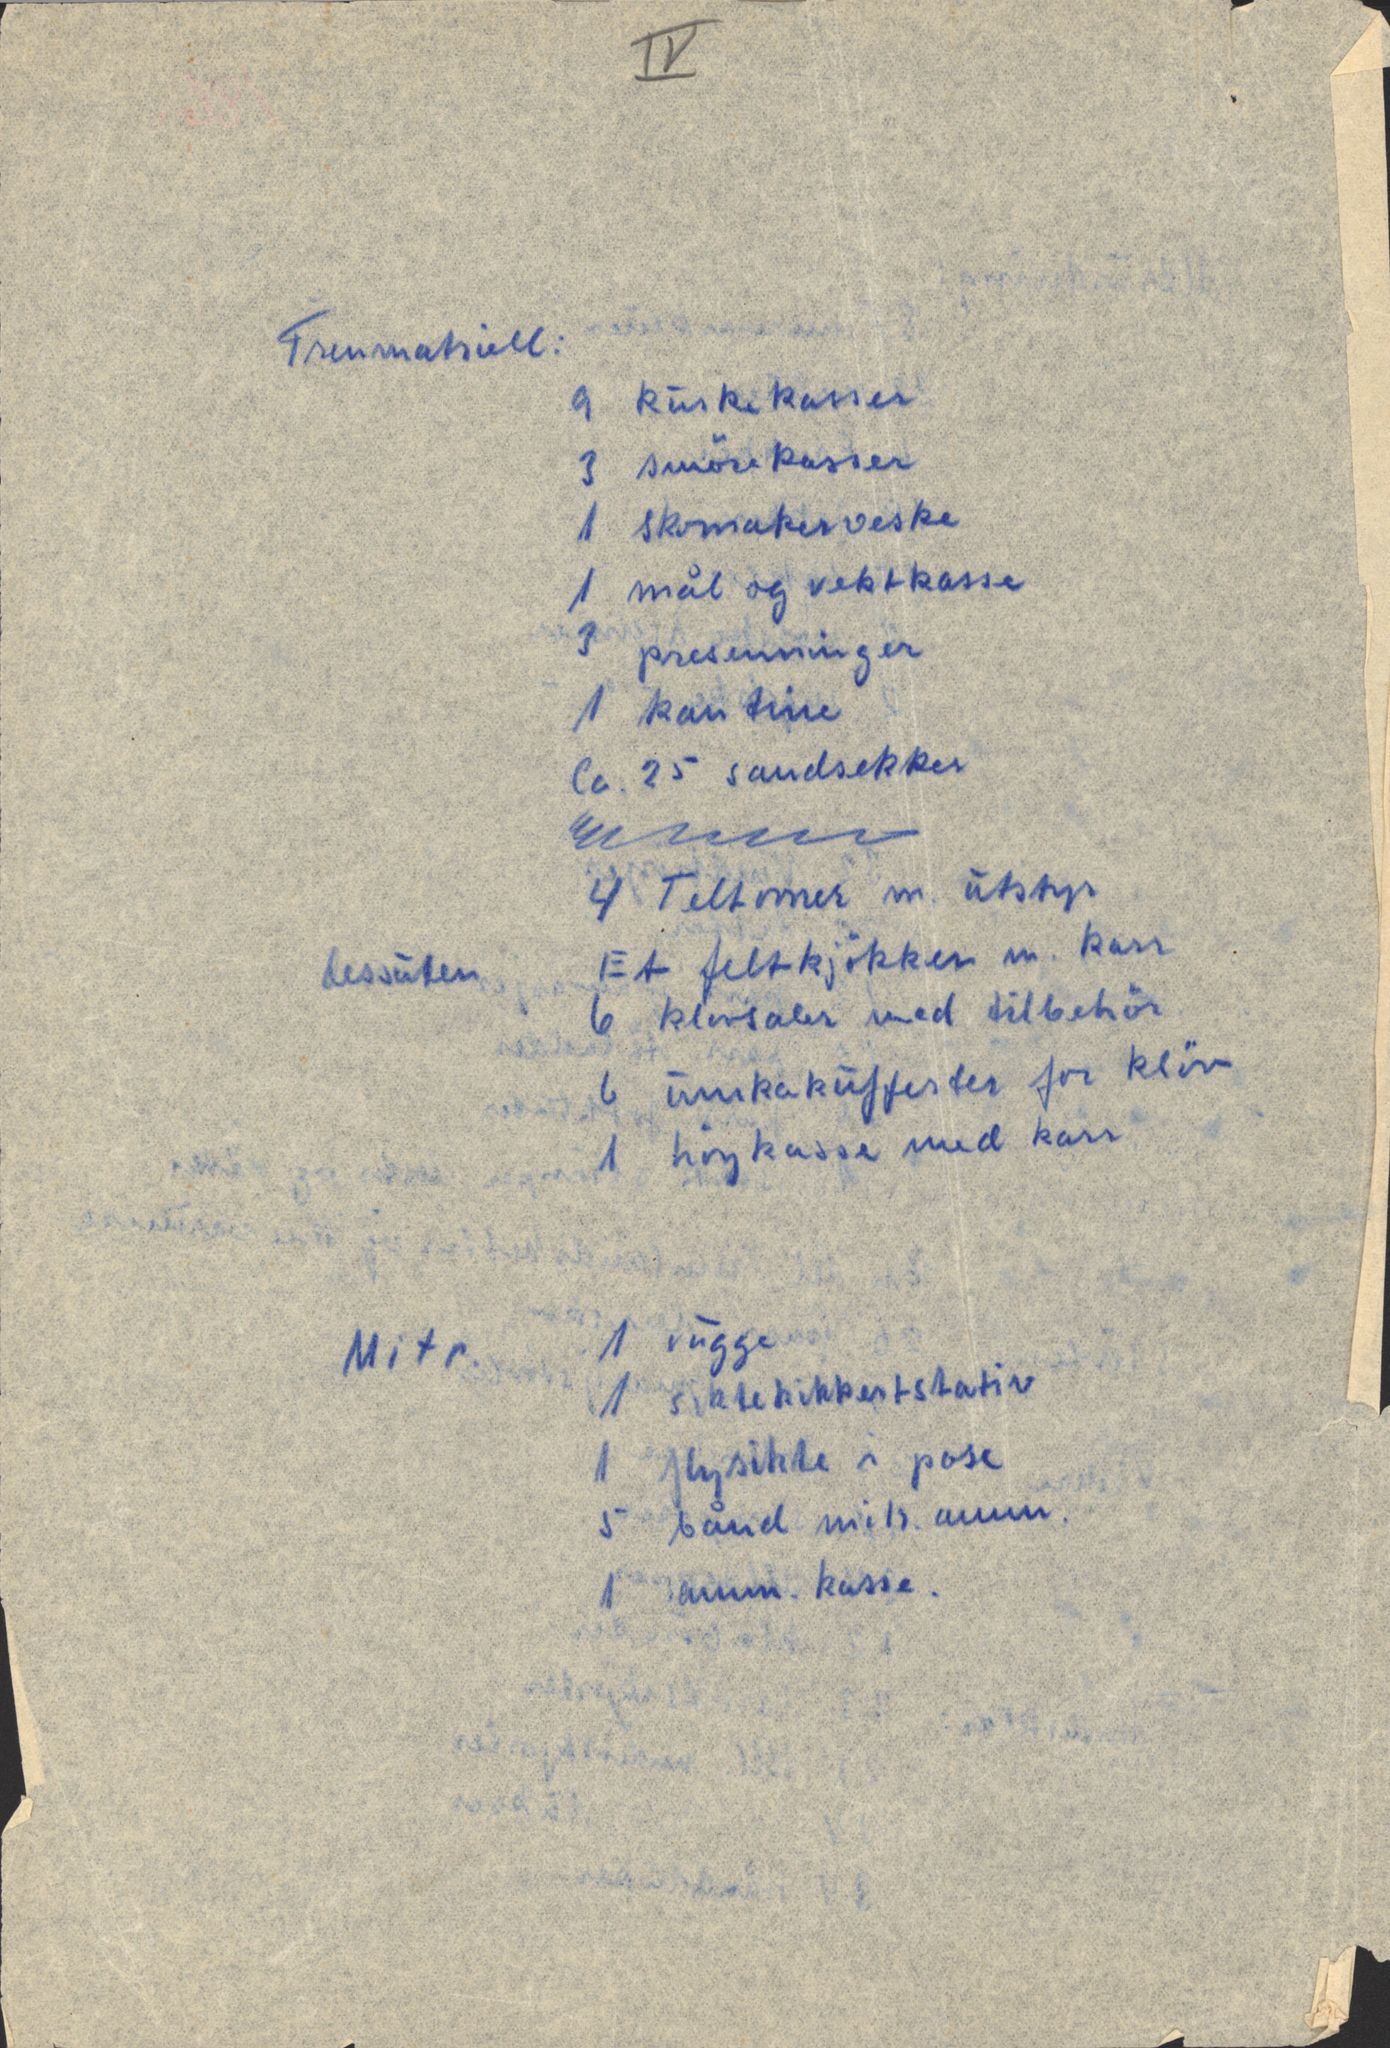 IV
Trenmatriell:
9 kuskekasser
3 smörekasser
1 skomakerveske
1 mål og vektkasse
3 presenninger
1 kantine
Ca. 25 sandsekker
4 Teltomer m. utstyr
dessuten Et feltkjökken m. karr
6 klövsaler med tilbehör
6 unikakufferter for klöv
1 höykasse med karr
Mitr. 1 vugge
1 siktekikkertstativ
1 flysikte i pose
5 bånd mitr. amm.
1 amm. kasse.